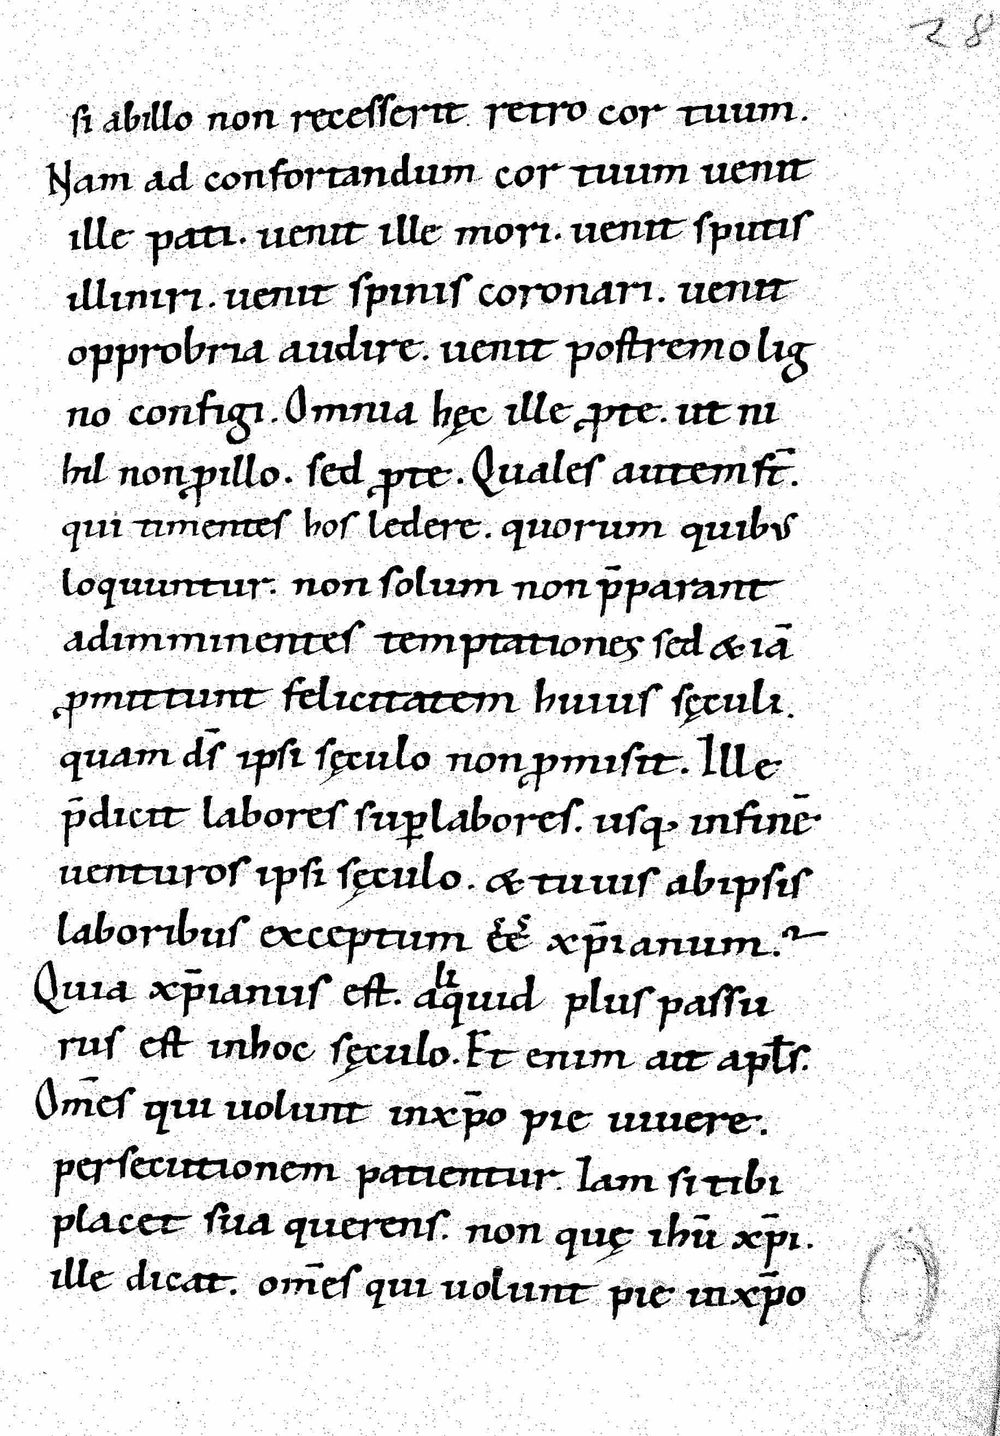 28
si abillo non recesserit retro cor tuum.
Nam ad confortandum cor tuum uenit
ille pati. uenit ille mori. uenit sputis
illiniri. uenit spinis coronari. uenit
opprobria audire. uenit postremo lig
no configi. Omnia hęc ille ꝓte. ut ni
hil nonꝓillo. sed ꝓte. Quales autem st̄.
qui timentes hos ledere. quorum quibus
loquuntur. non solum non p̄parant
adimminentes temptationes sed & iā
ꝓmittunt felicitatem huius sęculi.
quam ds̄ ipsi sęculo nonꝓmisit. Ille
p̄dicit labores suꝑlabores. usq; infinē
uenturos ipsi sęculo. & tu uis abipsis
laboribus exceptum ee͛͛ xp̄ianum?
Quia xp̄ianus est. aliquid plus passu
rus est inhoc sęculo. Et enim ait apłs.
Om̄es qui uolunt inxp̄o pie uiuere.
persecutionem patientur. Iam si tibi
placet sua querens. non quę ihū xp̄i.
ille dicat. om̄es qui uolunt pie inxp̄o